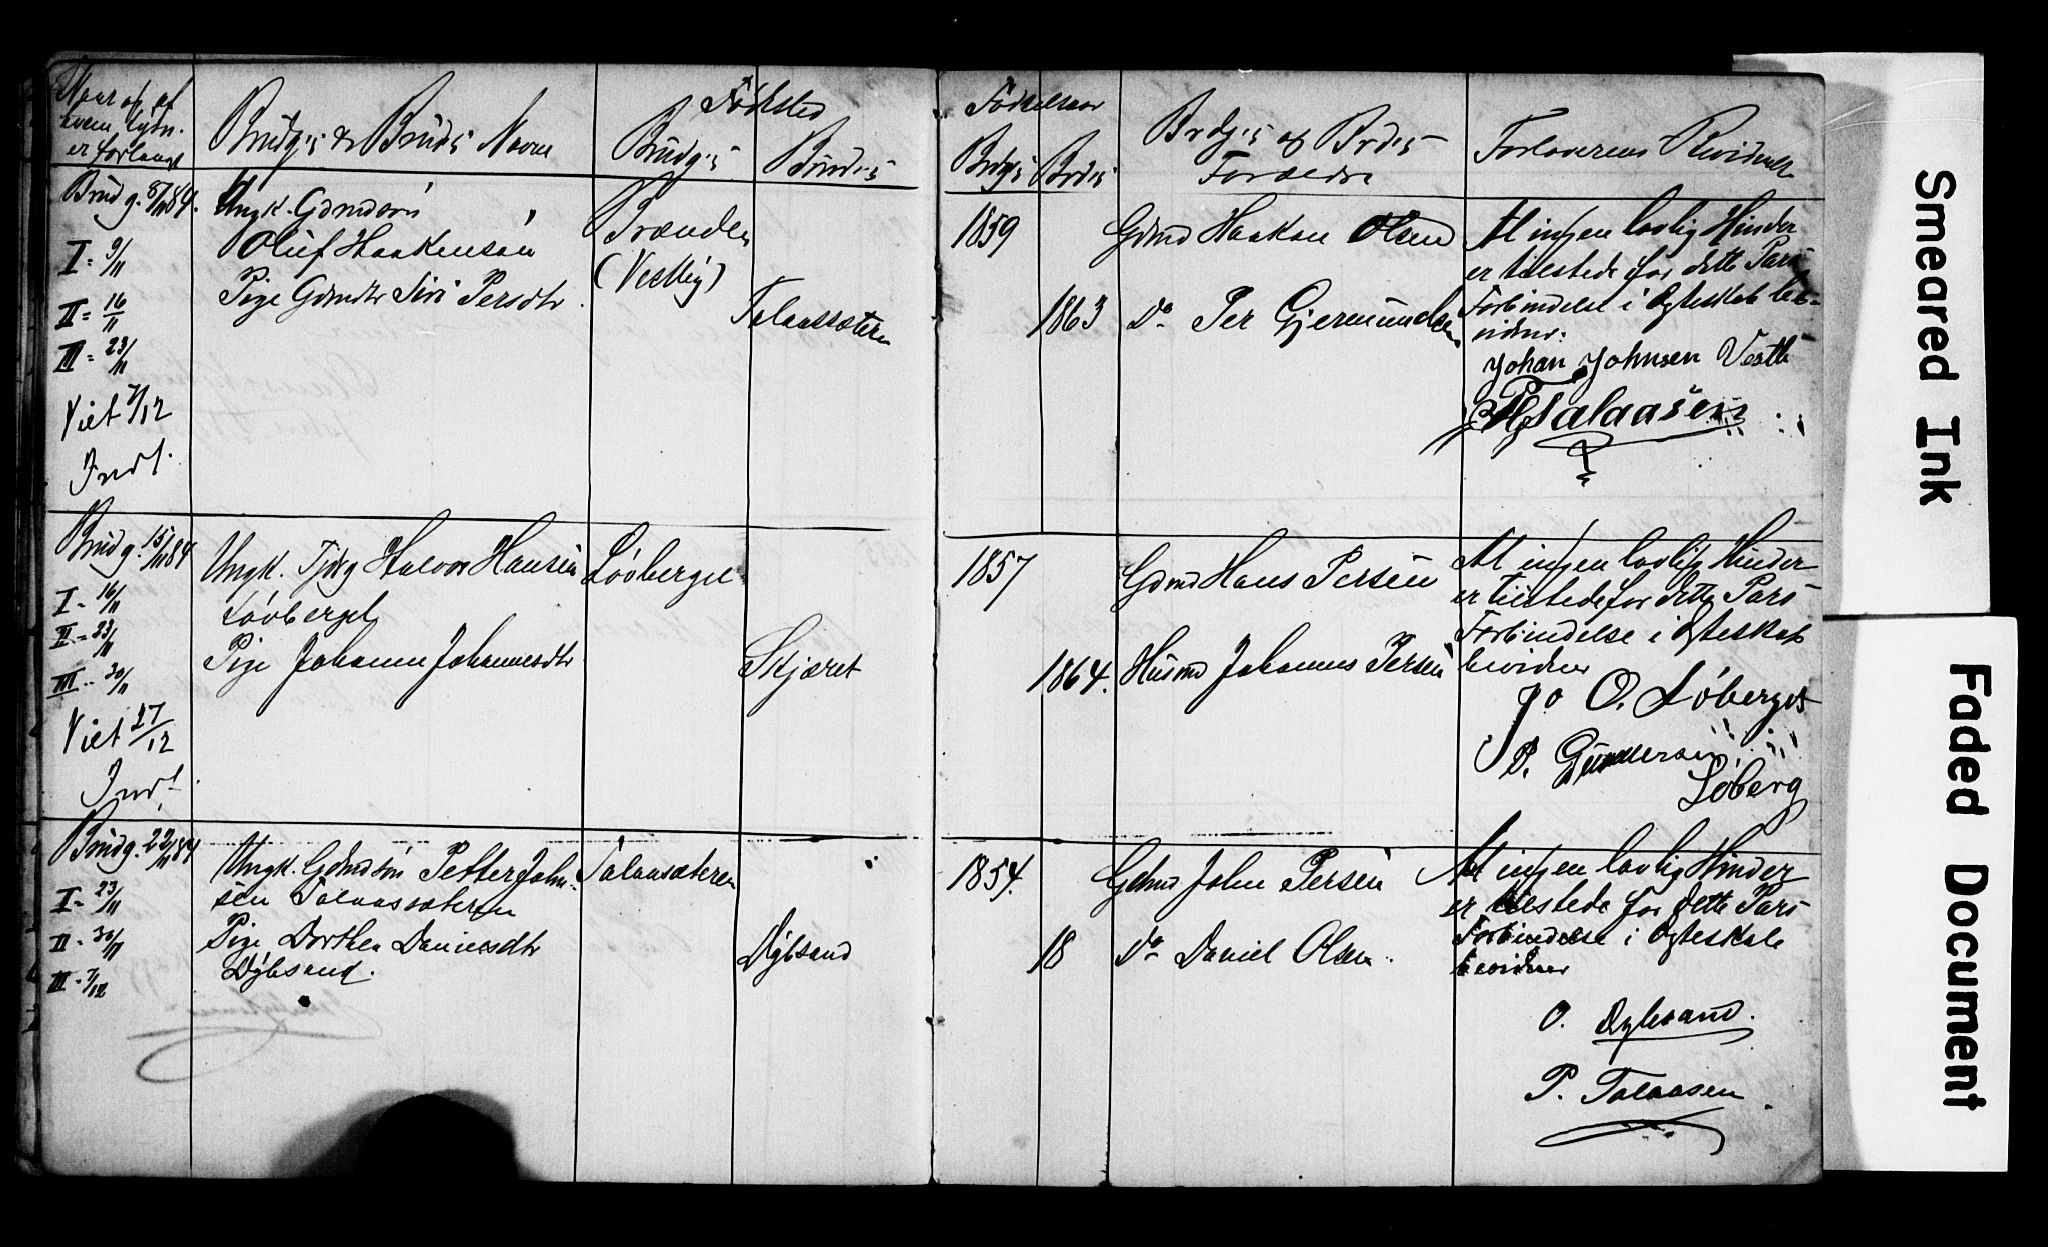 Naar og af
hvem lysn.
er forlangt
Brudg.s & Bruds Navne
Fødested
Brudg.s
Brudes
Fødselsaar
Brdg.s
Brdes
Brdg.s og Brdes
Forældre
Forloverens
Brudg. 8/11 84.
I = 9/11
II = 16/11
III = 23/11
Viet 7/12
Indf.
Ungk. Gdmdsøn
Oluf Haakensøn
Pige Gdmdtr Siri Persdtr.
Brænden
(Vestby)
Talaassæteren
1859
1863
Gdmd Haakon Olsen
Do Per Gjermundsen
At ingen lovlig Hinder
er tilstede for dette Pars
Forbindelse i Ægteskab be-
vidner:
Johan Johnsen Vestb
Talaasen
Brudg. 15/11 84
I - 16/11
II = 23/11
III - 30/11
Viet 27/12
Indf.
Ungk. Halvor Hansen
Løvberget
Pige Johanne Johannesdtr
Løvberget
Skjæret
1857
1864.
Gdmd Hans Persen
Husmd Johannes Persen
At ingen lovlig Hinder
er tilstede for dette Pars
Forbindelse i Ægteskab
bevidner
Jo O. Løberget
P. Gundersen
Løberg
Brudg. 22/11 84
I = 23/11
II - 30/11
III - 7/12
Ungk. Gdmdsøn Petter John-
sen Talaassæteren
Pige Dorthea Danielsdtr
Dyblsand.
Talaassæteren
Dyblsand
1854.
18
Gdmd John Persen
Do Daniel Olsen.
At ingen lovlig Hinder
er tilstede for dette Pars
Forbindelse i Ægteskab
bevidner
O. Dyblsand.
P. Talaasen
Smeared Ink
Faded Document